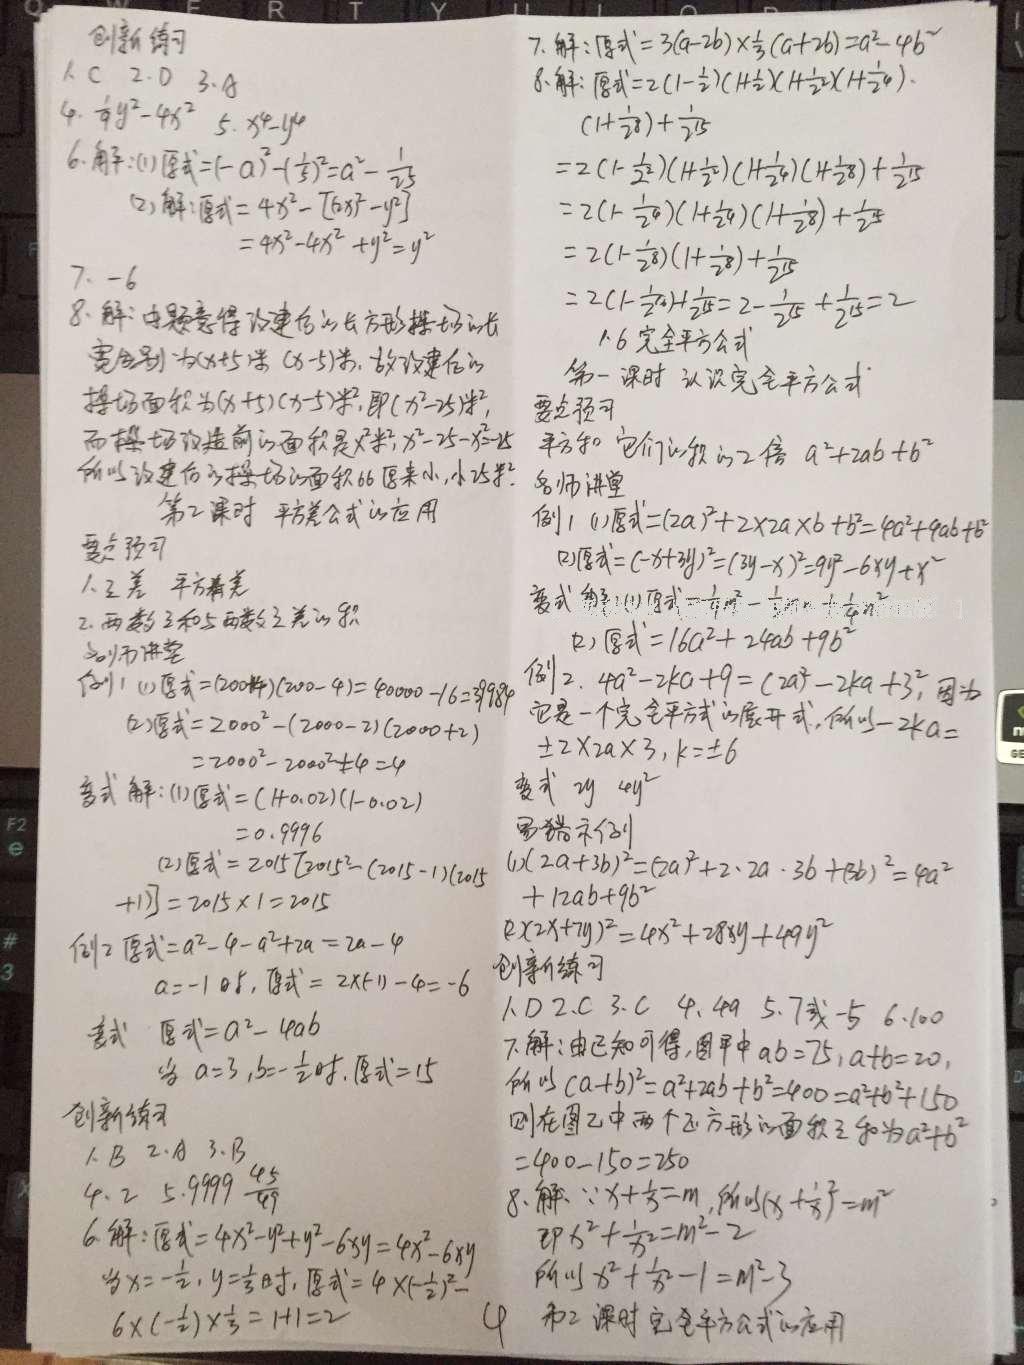 创新练习
1. C 2. D 3. A
4. 1/9y²-4x² 5. x⁴-y⁴
6. 解:(1)原式=(-a)²-(1/5)²=a²-1/25
(2)解:原式=4x²-[(2x)²-y²]
=4x²-4x²+y²=y²
7. -6
8. 解:由题意得改建后的长方形操场的长
宽分别为(x+5)米(x-5)米,故改建后的
操场面积为(x+5)(x-5)米²,即(x²-25)米²,
而操场改造前的面积是x²米²,x²-25-x²=-25
所以改建后的操场的面积比原来小,小25米².
第2课时 平方差公式的应用
要点预习
1. 之差 平方差
2. 两数之和与两数之差的积
名师讲堂
例1 (1)原式=(200+4)(200-4)=40000-16=39984
(2)原式=2000²-(2000-2)(2000+2)
=2000²-2000²+4=4
变式 解:(1)原式=(1+0.02)(1-0.02)
=0.9996
(2)原式=2015[2015²-(2015-1)(2015
+1)]=2015×1=2015
例2 原式=a²-4-a²+2a=2a-4
a=-1时,原式=2×(-1)-4=-6
变式 原式=a²-4ab
当a=3,b=-1/2时,原式=15
创新练习
1. B 2. A 3. B
4. 2 5. 9999 45/49
6. 解:原式=4x²-y²+y²-6xy=4x²-6xy
当x=-1/2,y=1/3时,原式=4×(-1/2)²-
6×(-1/2)×1/3=1+1=2
7. 解:原式=3(a-2b)×1/3(a+2b)=a²-4b²
8. 解:原式=2(1-1/2)(1+1/2)(1+1/2²)(1+1/2⁴)·
(1+1/2⁸)+1/2¹⁵
=2(1-1/2²)(1+1/2²)(1+1/2⁴)(1+1/2⁸)+1/2¹⁵
=2(1-1/2⁴)(1+1/2⁴)(1+1/2⁸)+1/2¹⁵
=2(1-1/2⁸)(1+1/2⁸)+1/2¹⁵
=2(1-1/2¹⁶)+1/2¹⁵=2-1/2¹⁵+1/2¹⁵=2
1.6 完全平方公式
第一课时 认识完全平方公式
要点预习
平方和 它们的积的2倍 a²+2ab+b²
名师讲堂
例1 (1)原式=(2a)²+2×2a×b+b²=4a²+4ab+b²
(2)原式=(-x+3y)²=(3y-x)²=9y²-6xy+x²
变式 解:(1)原式=
(2)原式=16a²+24ab+9b²
例2. 4a²-2ka+9=(2a)²-2ka+3²,因为
它是一个完全平方式的展开式,所以-2ka=
±2×2a×3,k=±6
变式 2y 4y²
易错示例
(1)×(2a+3b)²=(2a)²+2·2a·3b+(3b)²=4a²
+12ab+9b²
(2)×(2x+7y)²=4x²+28xy+49y²
创新练习
1. D 2. C 3. C 4. 4a 5. 7或-5 6. 100
7. 解:由已知可得,图甲中ab=75,a+b=20,
所以(a+b)²=a²+2ab+b²=400=a²+b²+150
则在图乙中两个正方形的面积之和为a²+b²
=400-150=250
8. 解:∵x+1/x=m,所以(x+1/x)²=m²
即x²+1/x²=m²-2
所以x²+1/x²-1=m²-3
4 第2课时 完全平方公式的应用